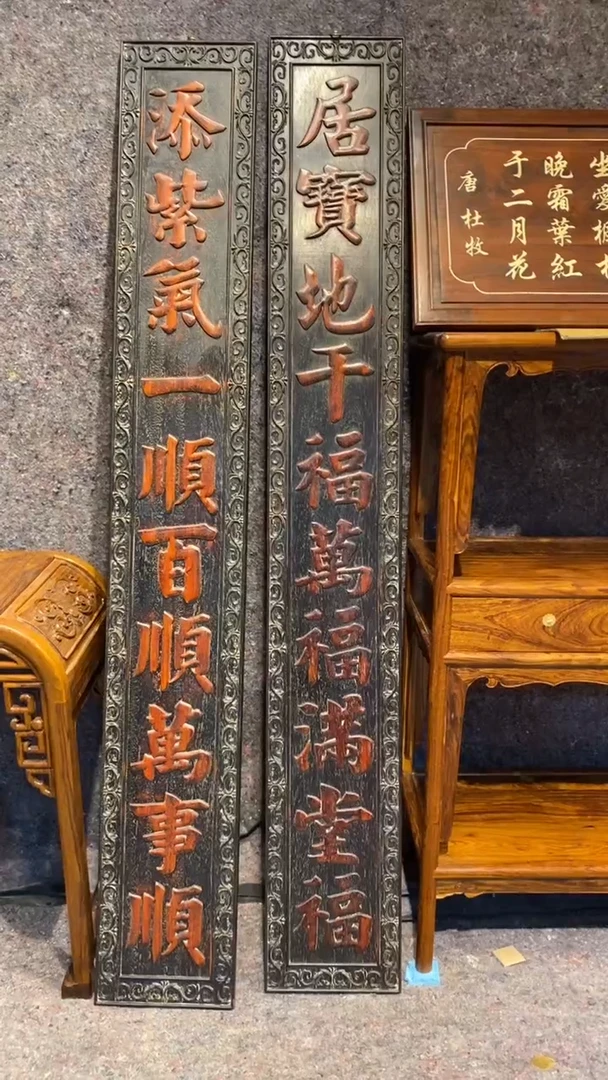 居寶地千福萬福滿堂福
添紫氣一順百順萬事順
坐愛楓林
晚霜葉紅
于二月花
唐杜牧